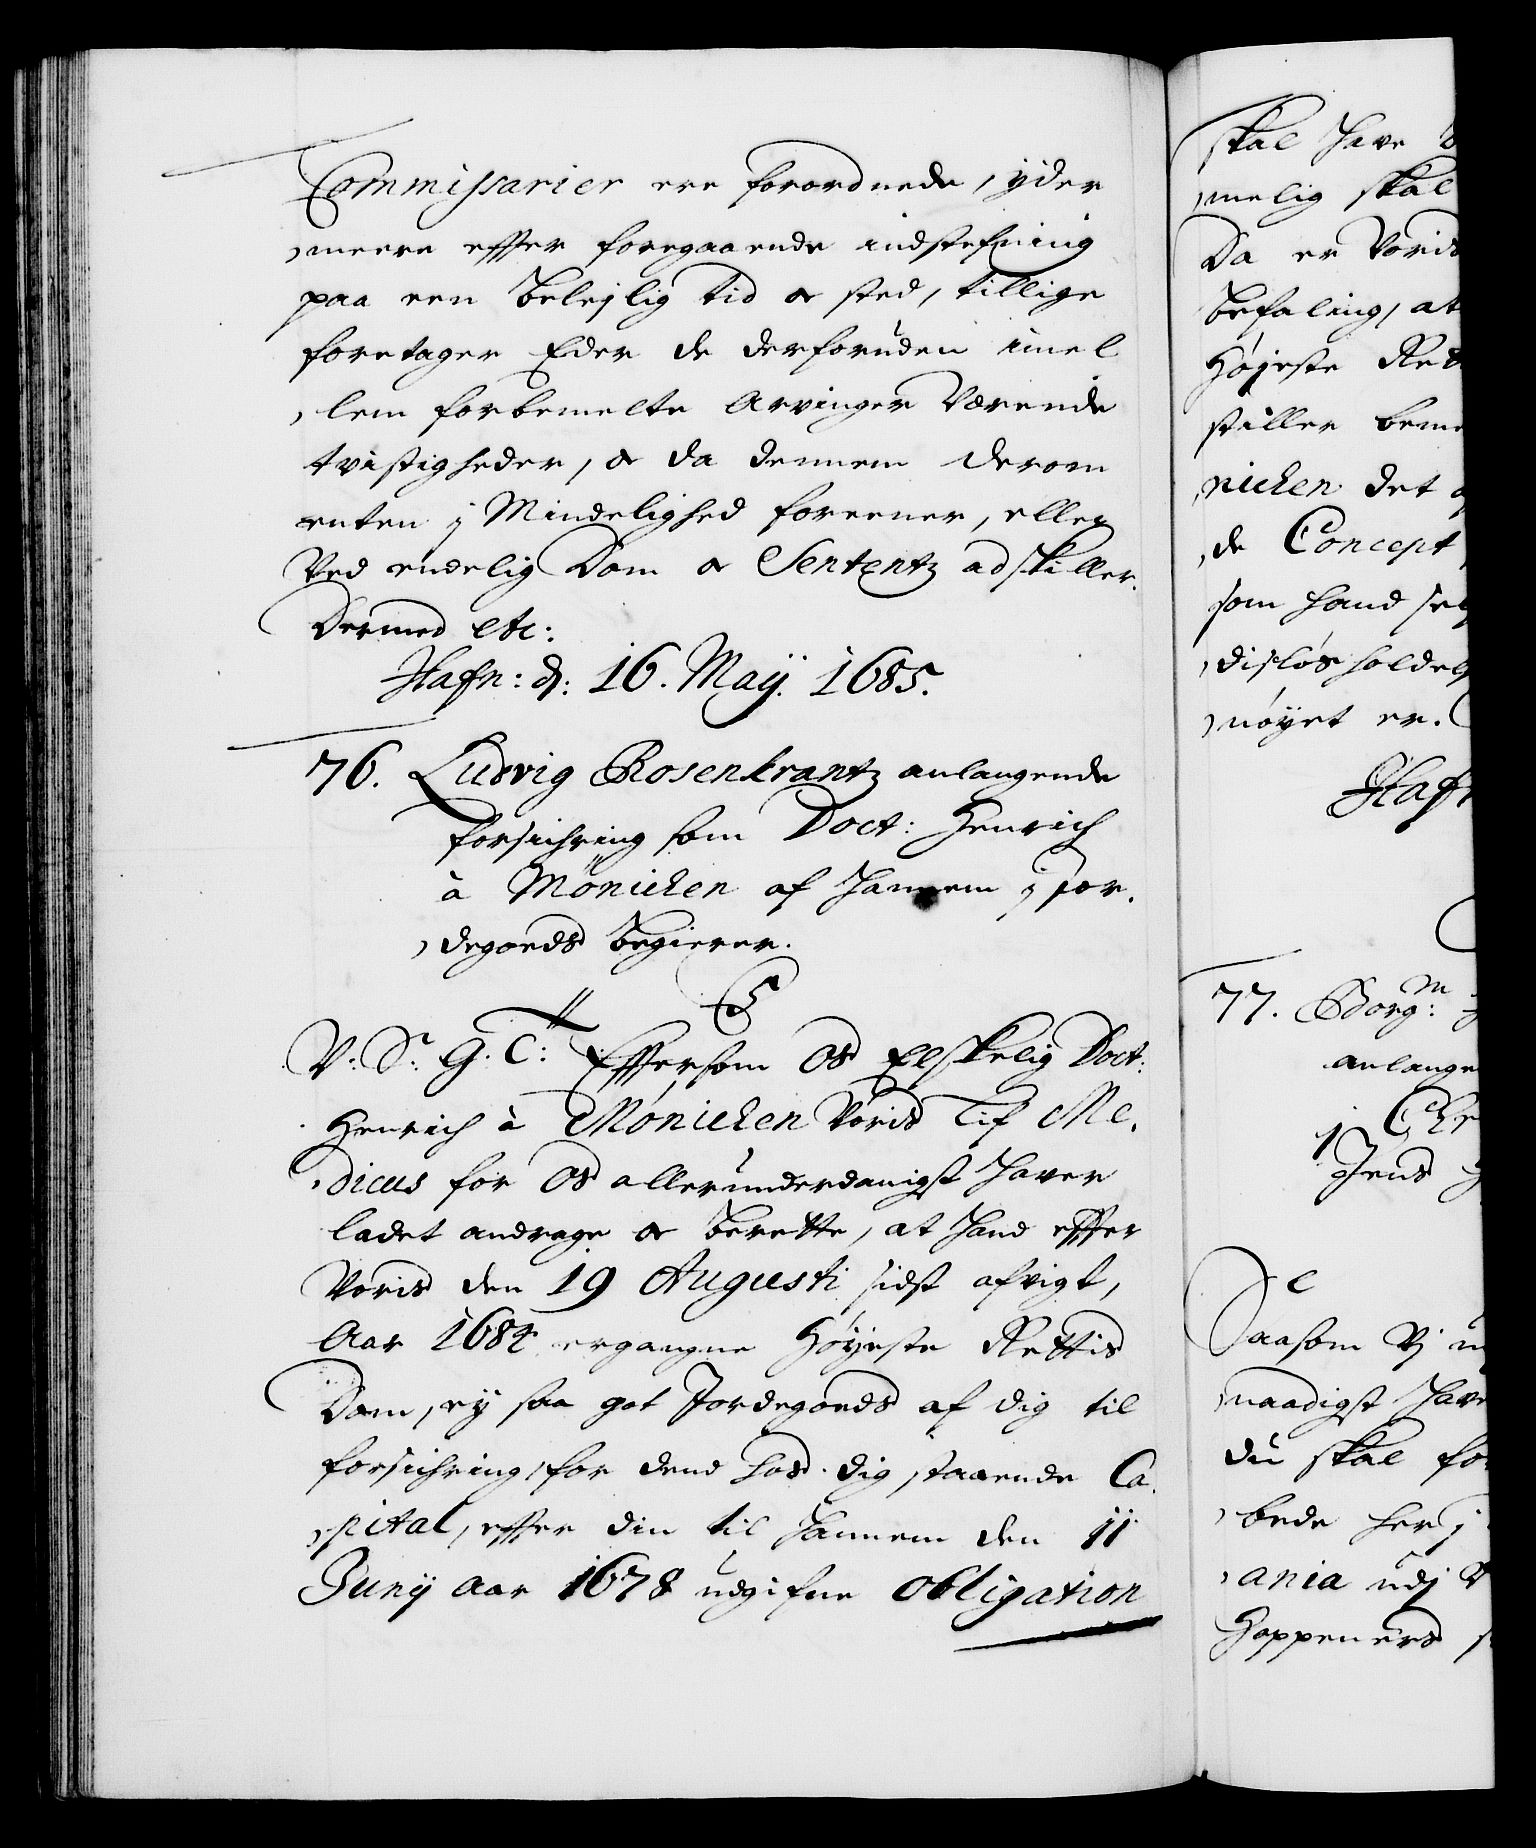 Commissarier ere forordnede, yder
meere efter foregaaende indstefning
paa een beleylig tid & sted, tillige
foretager Eder de derforuden imel
lem forbemelte Arvinger Værende
tvistigheder, & da dennem derom
enten j Mindelighed foreener, eller
Ved endelig Dom & Sententz adskiller.
Dermed etc:
Hafn: d: 16. Maÿ. 1685.
76. Ludvig Rosenkrantz anlangende
forsichring som Doct: Henrich
à Mönichen af hannem j jor,
degoeds begierer.
V: Sr: G. T: Eftersom Os Elskelig Doct:
Henrich à Mönichen Voris Lif Me,
dicus for Os allerunderdanigst haver
ladet andrage & berette, at hand efter
Voris den 19 Augusti sidst afvigt,
Aar 1684 ergangne Høyeste Rettis
Dom, ey saa got Jordegoeds af dig til
forsichring for dend hos dig staaende Ca,
pital, efter din til hannem den 11
Junÿ Aar 1678 udgifne Obligation
skal have
melig skal
Da er Voris
befaling, at
Høyeste
stiller
nichen det
de Concept
som hand
disløs
nøyet er.
Haf
77. Borgm:
anlange
Jens
Saasom Vj
naadigst have
du skal
bede her j
ania udj
Hoppeners